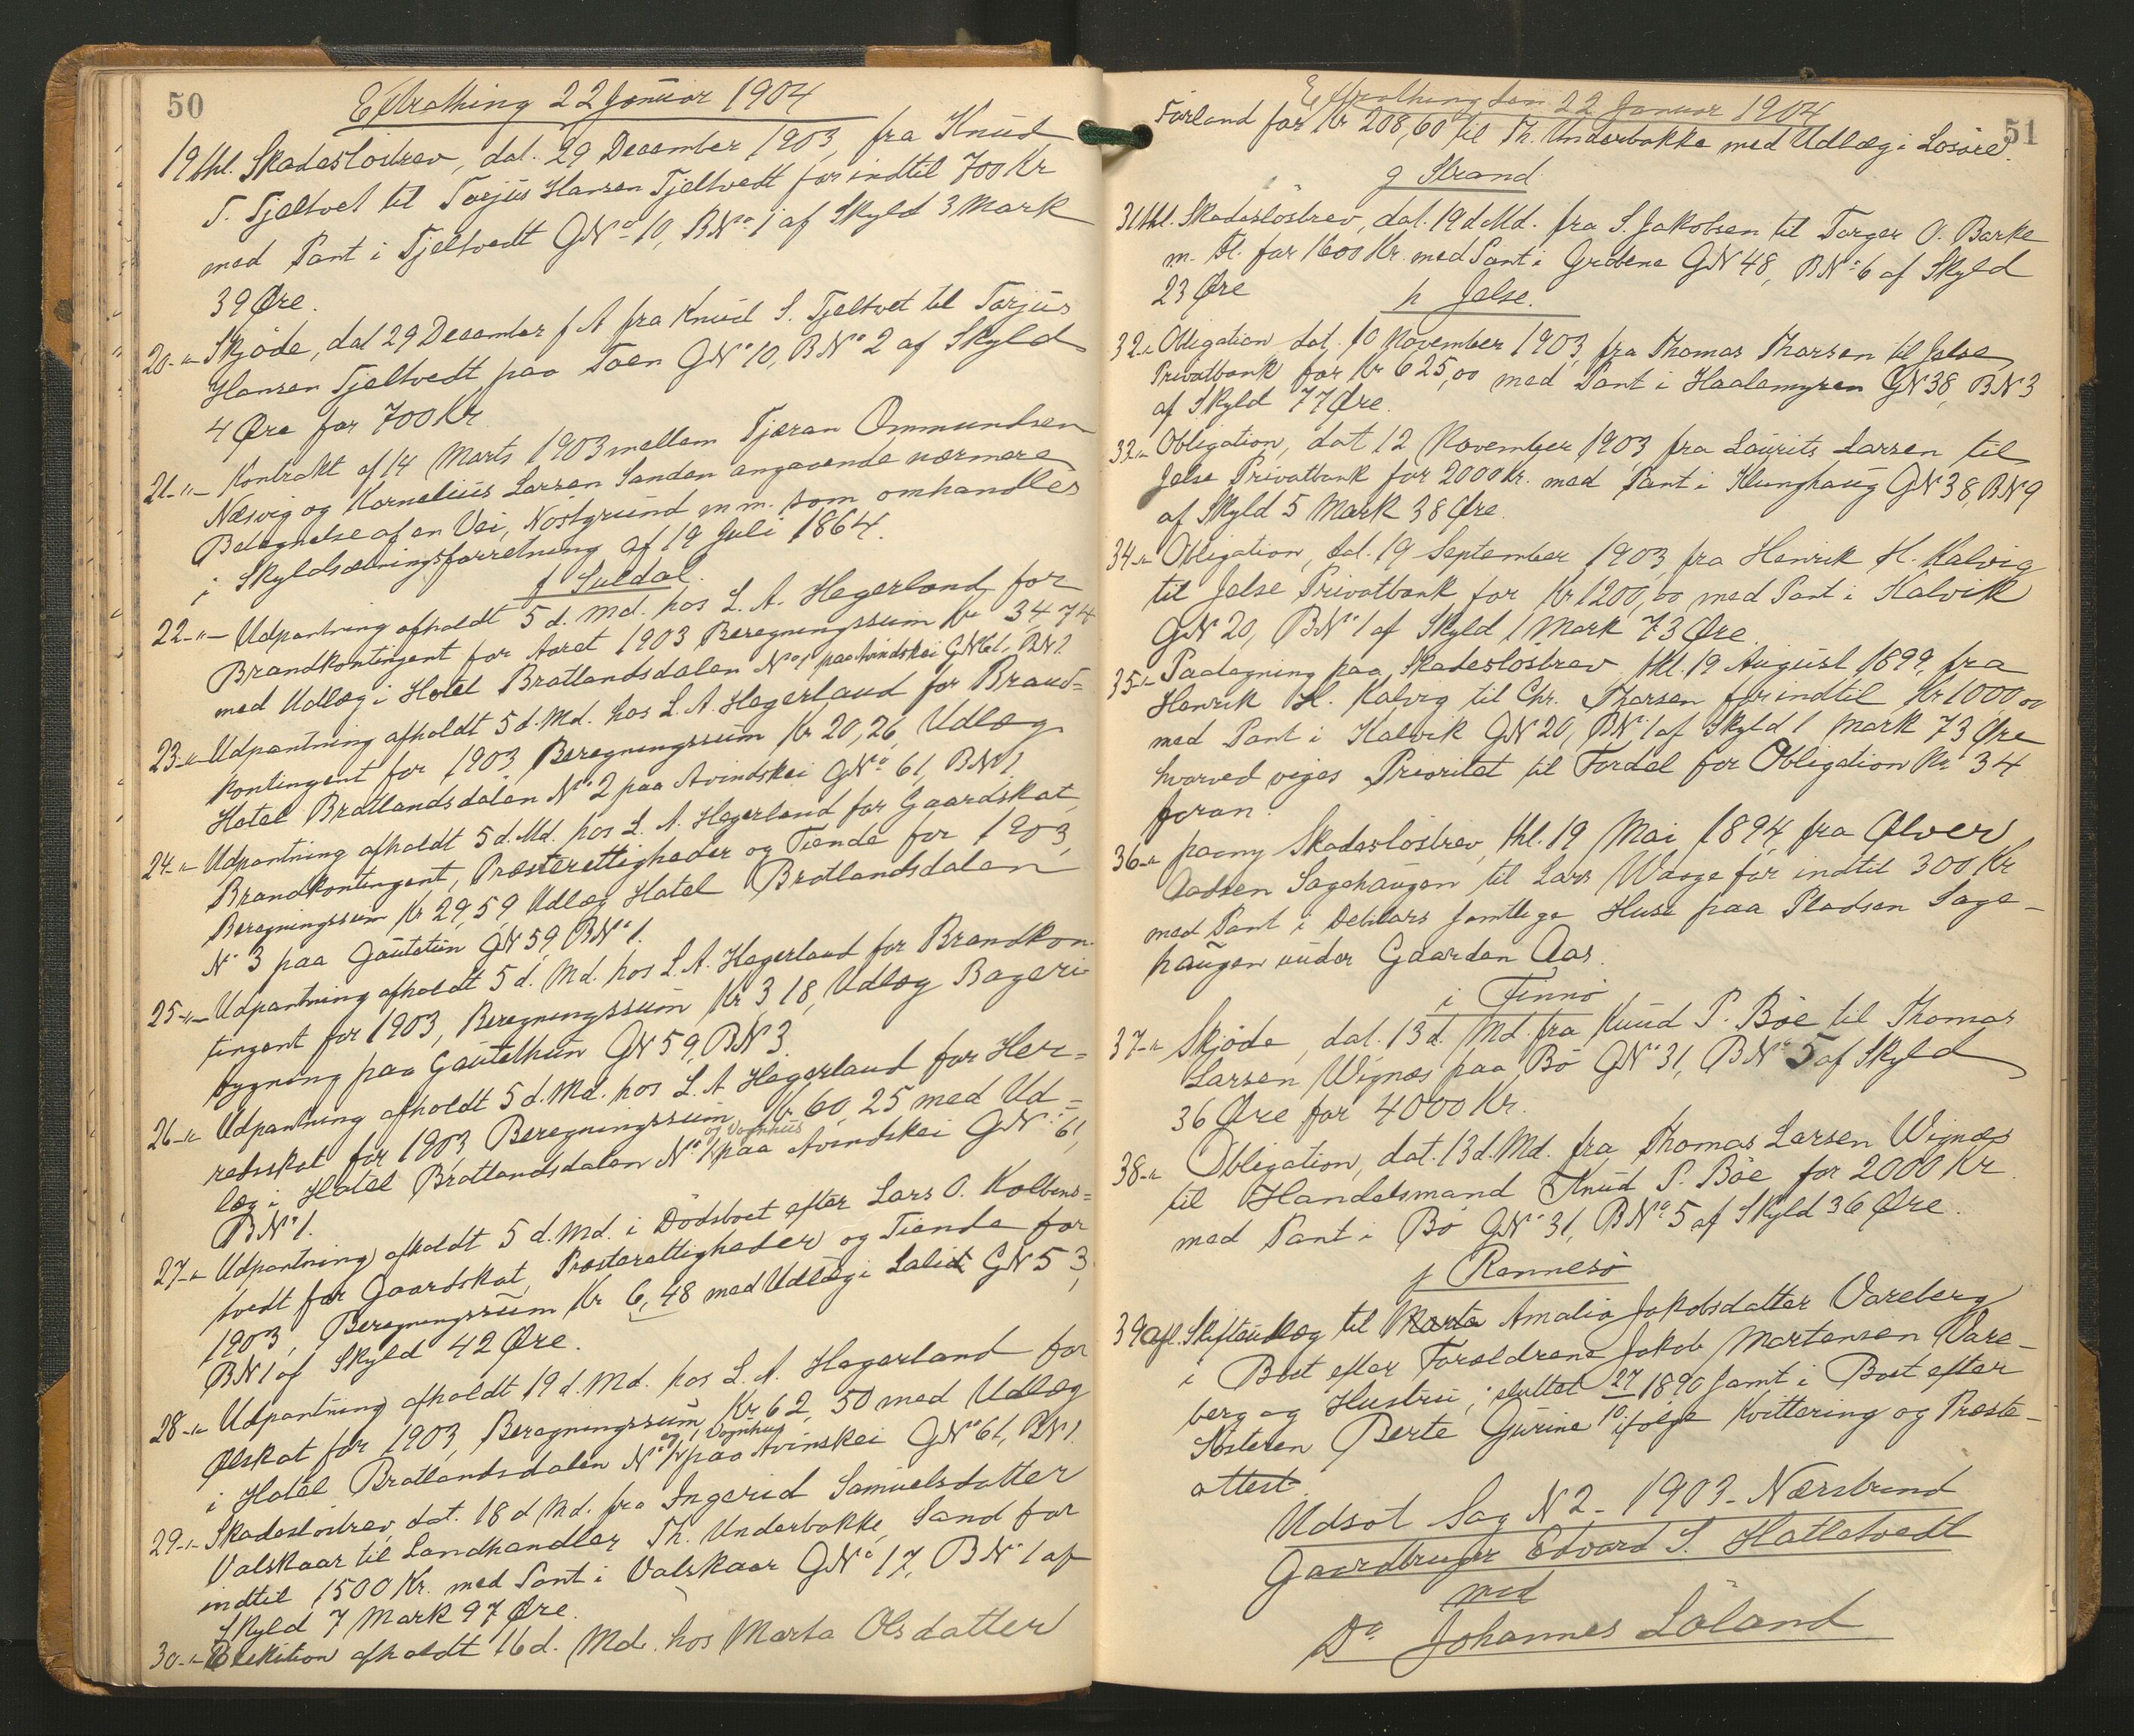 50
Extrathing 22 Januar 1904
19 thl. Skadeslösbrev, dat. 29 December 1903, fra Knud
T. Tjeltvet til Torjus Hansen Tjeltvedt for indtil 700 Kr
med Pant i Tjeltvedt GNo 10, BNo 1 af Skyld 3 Mark
39 Øre.
20-"- Skjöde, dat 29 December f A fra Knud T. Tjeltvet til Torjus
Hansen Tjeltvedt paa Toen GNo 10, BNo 2 af Skyld
4 Øre for 700 Kr
21-"- Kontrakt af 14 Marts 1903 mellem Tjeran Ommundsen
Næsvig og Kornelius Larsen Sanden angaaende nærmere
Betegnelse af en Vei, Nostgrund m m. som omhandles
i Skyldsætningsforretning af 19 Juli 1864.
f Suldal.
22-"- Udpantning afholdt 5 d. Md. hos L. A. Hegerland for
Brandkontingent for Aaret 1903 Beregningssum Kr 34,74
med Udlæg i Hotel Bratlandsdalen No 1 paa Avindskei GN 61, BN 1
23-"- Udpantning afholdt 5 d. Md. hos L. A Hegerland for Brand=
kontingent for 1903, Beregningssum Kr 20,26, Udlæg
Hotel Bratlandsdalen No 2 paa Avindskei GNo 61, BN 1
24-"- Udpantning afholdt 5 d. Md. hos L. A. Hegerland for Gaardskat,
Brandkontingent, Præsterettigheder og Tiende for 1903,
Beregningssum Kr 29,59, Udlæg Hotel Bratlandsdalen
No 3 paa Gautetun GN 59, BNo 1.
25-"- Udpantning afholdt 5 d. Md. hos L. A. Hegerland for Brandkon-
tingent for 1903, Beregningssum Kr 3,18, Udlæg Bageri-
bygning paa Gautethun GN 59, BN 3.
26-"- Udpantning afholdt 5 d. Md. hos L. A Hegerland for Her=
redsskat for 1903, Beregningssum Kr. 60,25 med Ud=
læg i Hotel Bratlandsdalen No 1 og Vognhus paa Avindskei GNo 61,
BNo 1.
27-"- Udpantning afholdt 5 d. Md. i Dödsboet efter Lars O. Kolbens=
tvedt for Gaardskat, Præsterettigheder og Tiende for
1903, Beregningssum Kr 6,48 med Udlæg i Lalid GN 53,
BN 1 af Skyld 42 Øre.
28-"- Udpantning afholdt 19 d. Md. hos L. A. Hegerland for
Ølskat for 1903, Beregningssum, Kr 62,50 med Udlæg
i Hotel Bratlandsdalen No 1 og Vognhus paa Avinskei GNo 61, BN 1.
29-"- Skadeslösbrev, dat. 18 d Md. fra Ingerid Samuelsdatter
Valskaar til Landhandler Th. Underbakke, Sand for
indtil 1500 Kr. med Pant i Valskaar GNo 17, BNo 1 af
Skyld 7 Mark 97 Øre.
30-"- Exekution afholdt 16 d. Md. hos Marta Olsdatter
51
Extrathing den 22 Januar 1904
Førland for Kr 208,60 til Th. Underbakke med Udlæg i Lösöre.
g Strand
31 thl. Skadeslösbrev, dat. 19 d Md. fra S. Jakobsen til Torger O. Barke
m. Fl. for 1600 Kr. med Pant i Grøene GN 48, BNo 6 af Skyld
23 Øre
h Jelse.
32-"- Obligation dat. 10 November 1903, fra Thomas Thorsen til Jelse
Privatbank for Kr 625,00 med Pant i Haalemyren GN 38, BN 3
af Skyld 77 Øre.
33-"- Obligation, dat 12 November 1903 fra Laurits Larsen til
Jelse Privatbank for 2000 Kr. med Pant i Klunghaug GN 38, BN 9
af Skyld 5 Mark 38 Øre.
34-"- Obligation, dat. 19 September 1903 fra Henrik H. Kalvig
til Jelse Privatbank for Kr 1200,00 med Pant i Kalvik
GN 20, BNo 1 af Skyld 1 Mark 73 Øre.
35-"- Paategning paa Skadeslösbrev, thl. 19 August 1899, fra
Henrik H. Kalvig til Chr. Thorsen for indtil Kr 1000 00
med Pant i Kalvik GN 20, BNo 1 af Skyld 1 Mark 73 Øre
hvorved viges Prioritet til Fordel for Obligation No 34
foran.
36-"- paany Skadeslösbrev, thl. 19 Mai 1894, fra Ølver
Aadsen Sagehaugen til Lars Waage for indtil 300 Kr
med Pant i Debitors samtlige Huse paa Pladsen Sage-
haugen under Gaarden Aas.
i Finnö
37-"- Skjöde, dat. 13 d. Md. fra Knud P. Böe til Thomas
Larsen Wignæs paa Bö GNo 31, BNo 5 af Skyld
36 Øre for 4000 Kr.
38-"- Obligation, dat. 13 d. Md. fra Thomas Larsen Wignæs
til Handelsmand Knud P. Böe for 2000 Kr
med Pant i Bö GNo 31, BNo 5 af Skyld 36 Øre.
j Rennesö
39 afl. Skifteudlæg til Marta Amalia Jakobsdatter Vareberg
i Boet efter Forældrene Jakob Mortensen Vare-
berg og Hustru, sluttet 27/10 1890 samt i Boet efter
Sösteren Berte Gurine ifölge Kvittering og Præste-
attest.
Udsat Sag N 2 - 1903 - Nærstrand
Gaardbruger Edvard S. Hatletvedt
med
Do Johannes Löland